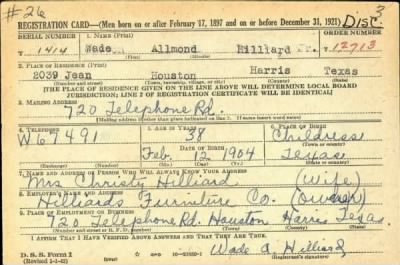 #26
REGISTRATION CARD—(Men born on or after February 17, 1897 and on or before December 31, 1921) DISC. 3
SERIAL NUMBER 1. NAME (Print) ORDER NUMBER
1414 Wade Allmond Hilliard Jr. 12713
2. PLACE OF RESIDENCE (Print)
2039 Jean Houston Harris Texas
(Number and street) (Town, township, village, or city) (County) (State)
[THE PLACE OF RESIDENCE GIVEN ON THE LINE ABOVE WILL DETERMINE LOCAL BOARD
JURISDICTION; LINE 2 OF REGISTRATION CERTIFICATE WILL BE IDENTICAL]
3. MAILING ADDRESS
720 Telephone Rd.
[Mailing address if other than place indicated on line 2. If same insert word same]
4. TELEPHONE 5. AGE IN YEARS 6. PLACE OF BIRTH
W67491 38 Childress
DATE OF BIRTH (Town or county)
Feb. 12 1904 Texas
(Exchange) (Number) (Mo.) (Day) (Yr.) (State or country)
7. NAME AND ADDRESS OF PERSON WHO WILL ALWAYS KNOW YOUR ADDRESS
Mrs. Christy Hilliard (Wife)
8. EMPLOYER'S NAME AND ADDRESS
Hilliards Furniture Co. (Owner)
9. PLACE OF EMPLOYMENT OR BUSINESS
720 Telephone Rd. Houston Harris Texas
(Number and street or R. F. D. number) (Town) (County) (State)
I AFFIRM THAT I HAVE VERIFIED ABOVE ANSWERS AND THAT THEY ARE TRUE.
D. S. S. Form 1 Wade A. Hilliard
(Revised 1-1-42) (over) (Registrant's signature)